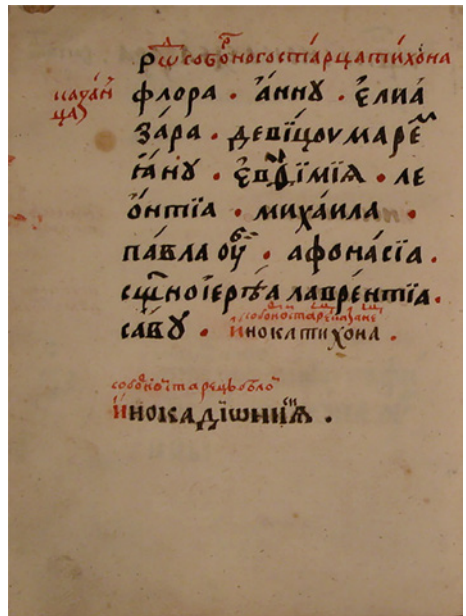 рѿ соборного старца тихона
казан
ца
флора . анну . елиа
зара . девицоу маре
ꙗну . евфимиѧ . ле
онтїа . михаила .
павла оу . афонасїа .
сщ҃ноїереѧ лаврентїа .
савꙋ . инока тихона .
соборной старець
инока дїѡнисиѧ .